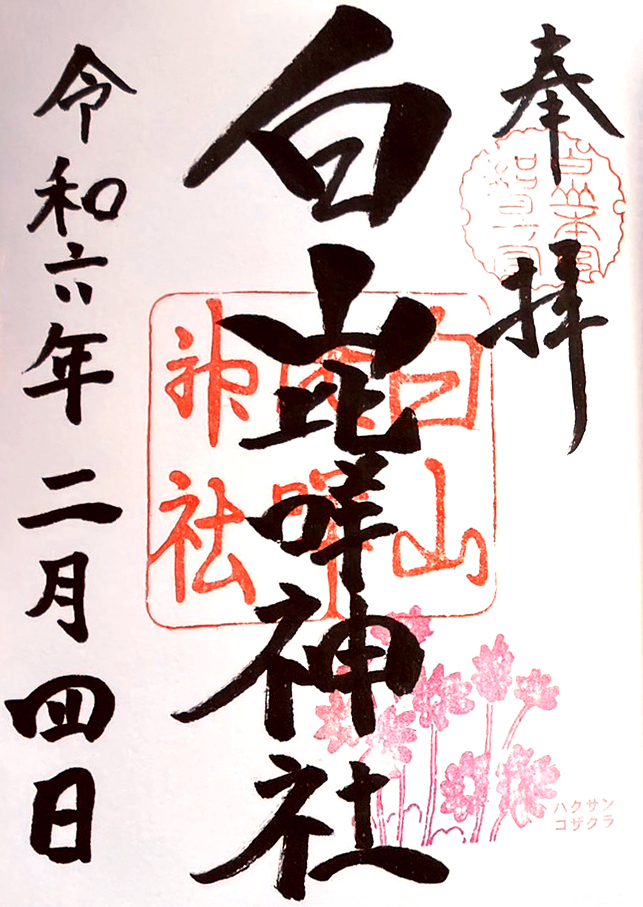 奉拝
白山比咩神社
白山比咩神社
令和六年二月四日
ハクサン
コザクラ